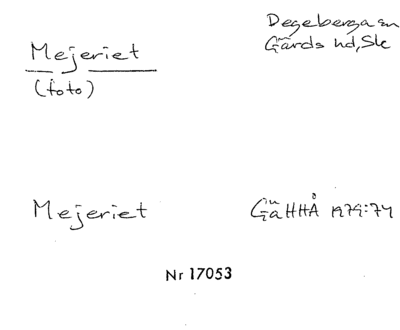 Mejeriet
(foto)
Degeberga sn
Gärds hd, Sk
Mejeriet
GäHHÅ 1979:74
Nr 17053